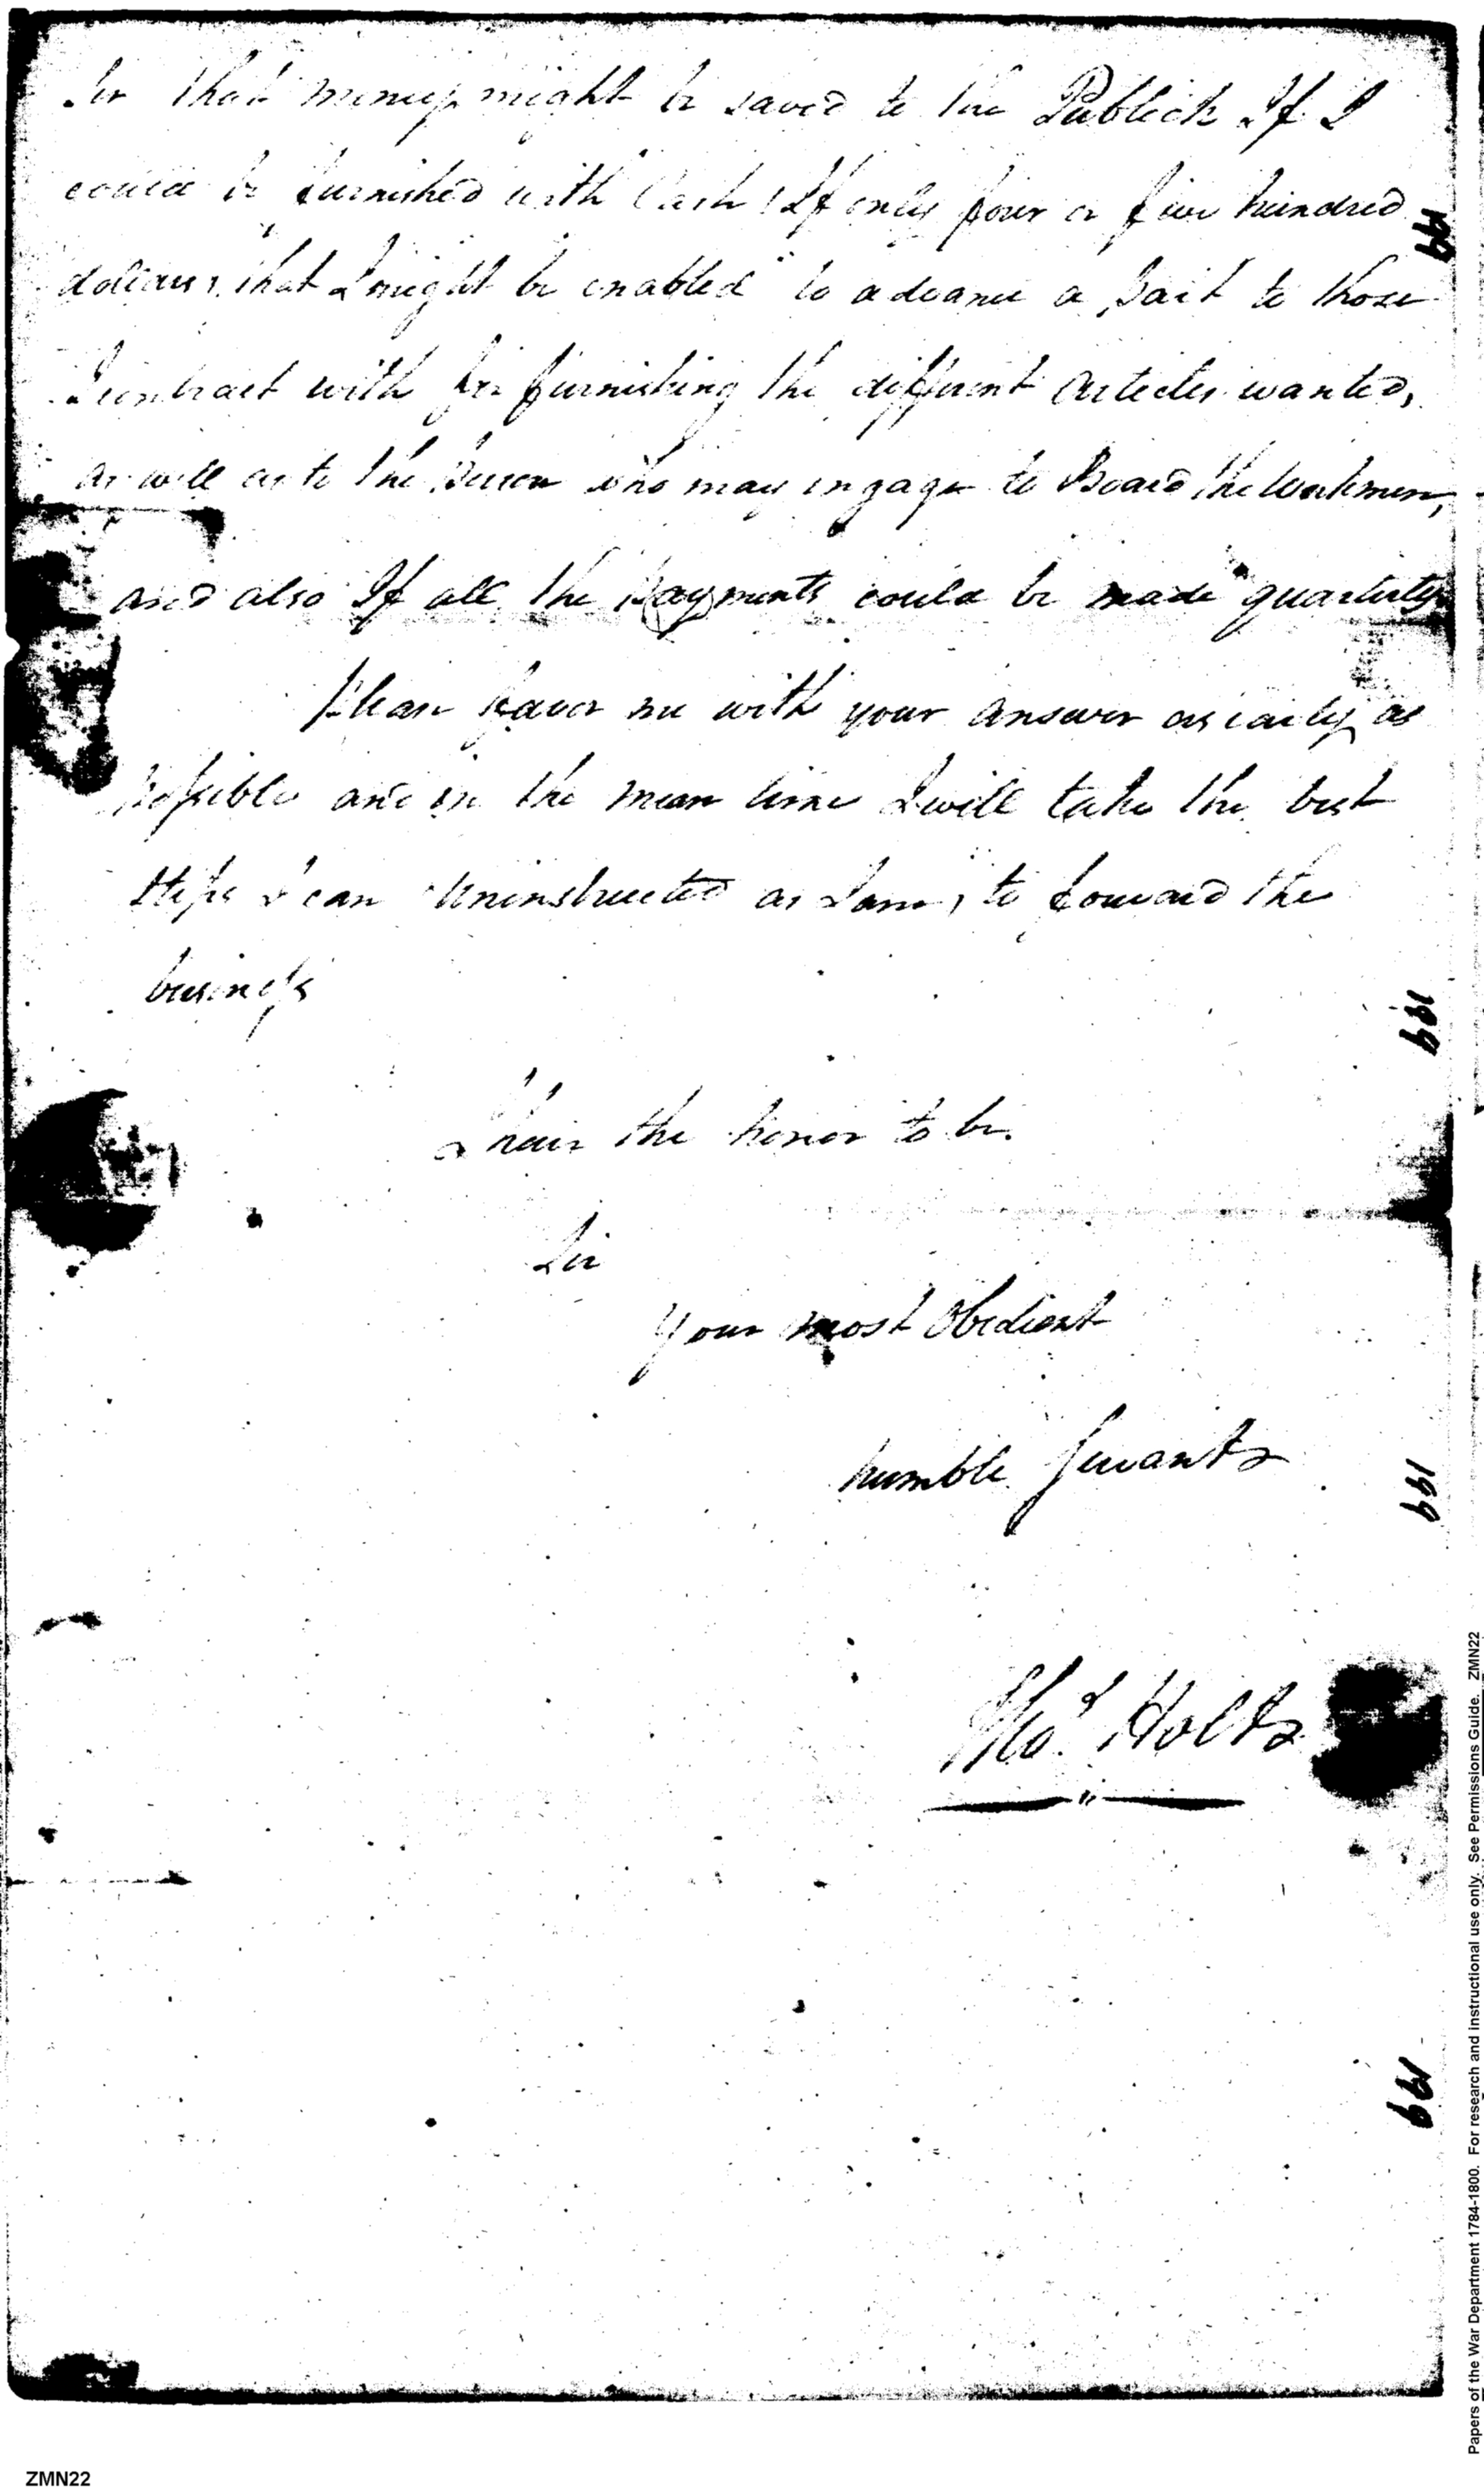 Sir that money might be saved to the Publick If I
could be furnished with Cash (If only four or five hundred
dollars, that I might be enabled to advance a part to those
I contract with for furnishing the different Articles wanted,
as well as to the Person who may engage to Board the Workmen,
and also If all the payments could be made quarterly
Please favor me with your answer as early as
possible and in the mean time I will take the best
steps I can Uninstructed as I am, to forward the
business
I have the honor to be.
Sir
Your most Obedient
humble Servant
Tho.s Holt
199
199
199
199
Papers of the War Department 1784-1800. For research and instructional use only. See Permissions Guide. ZMN22
ZMN22